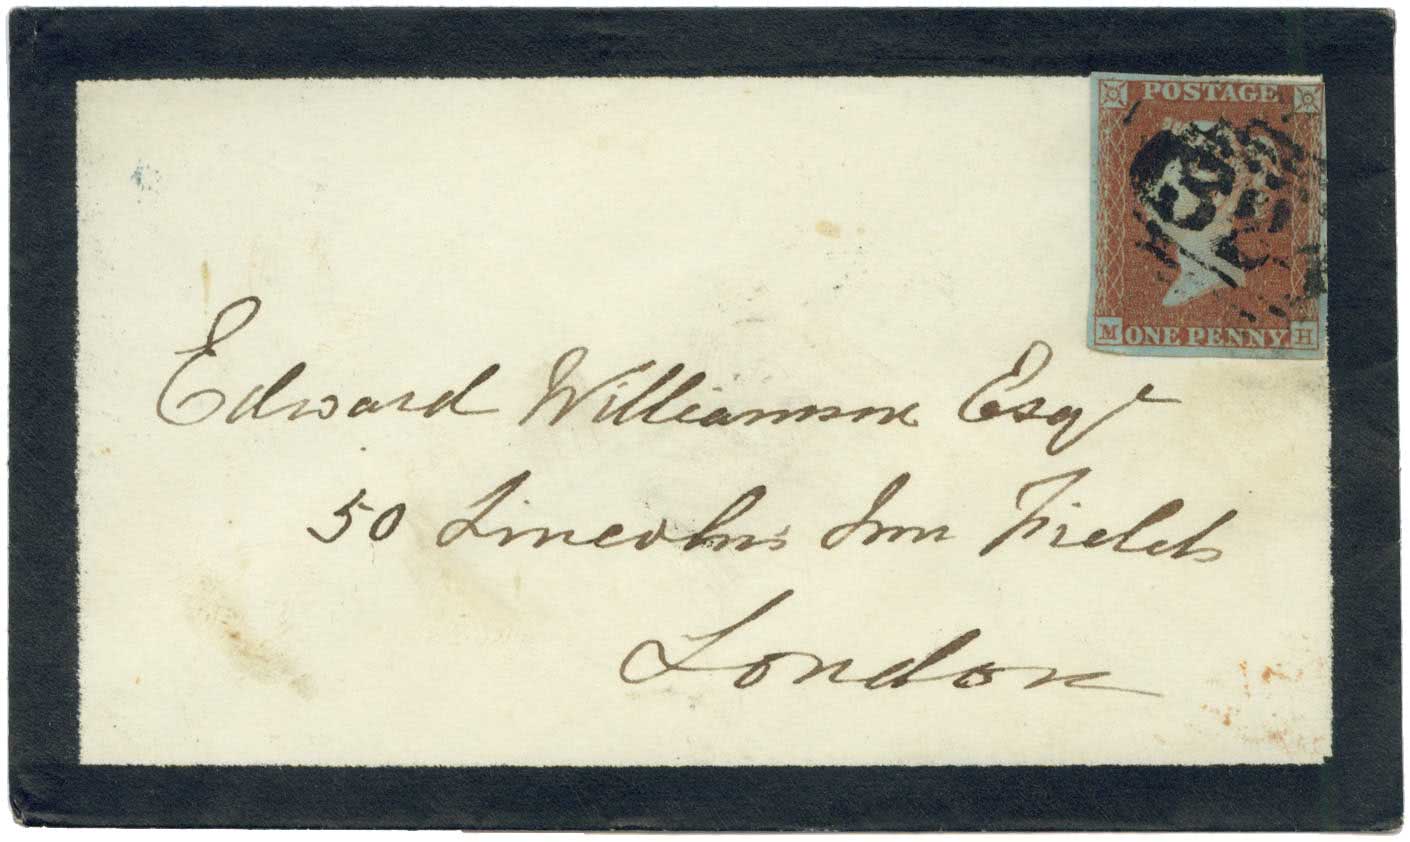 POSTAGE
M ONE PENNY H
Edward Williamson Esqr
50 Lincoln's Inn Fields
London